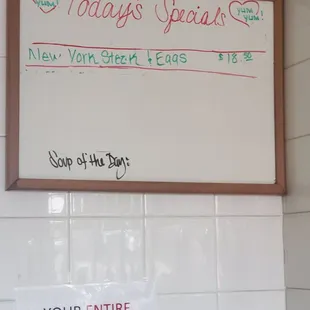 Yum! Todays Specials yum yum!
New York Steak & Eggs $18.50
Soup of the Day:
YOUR ENTIRE